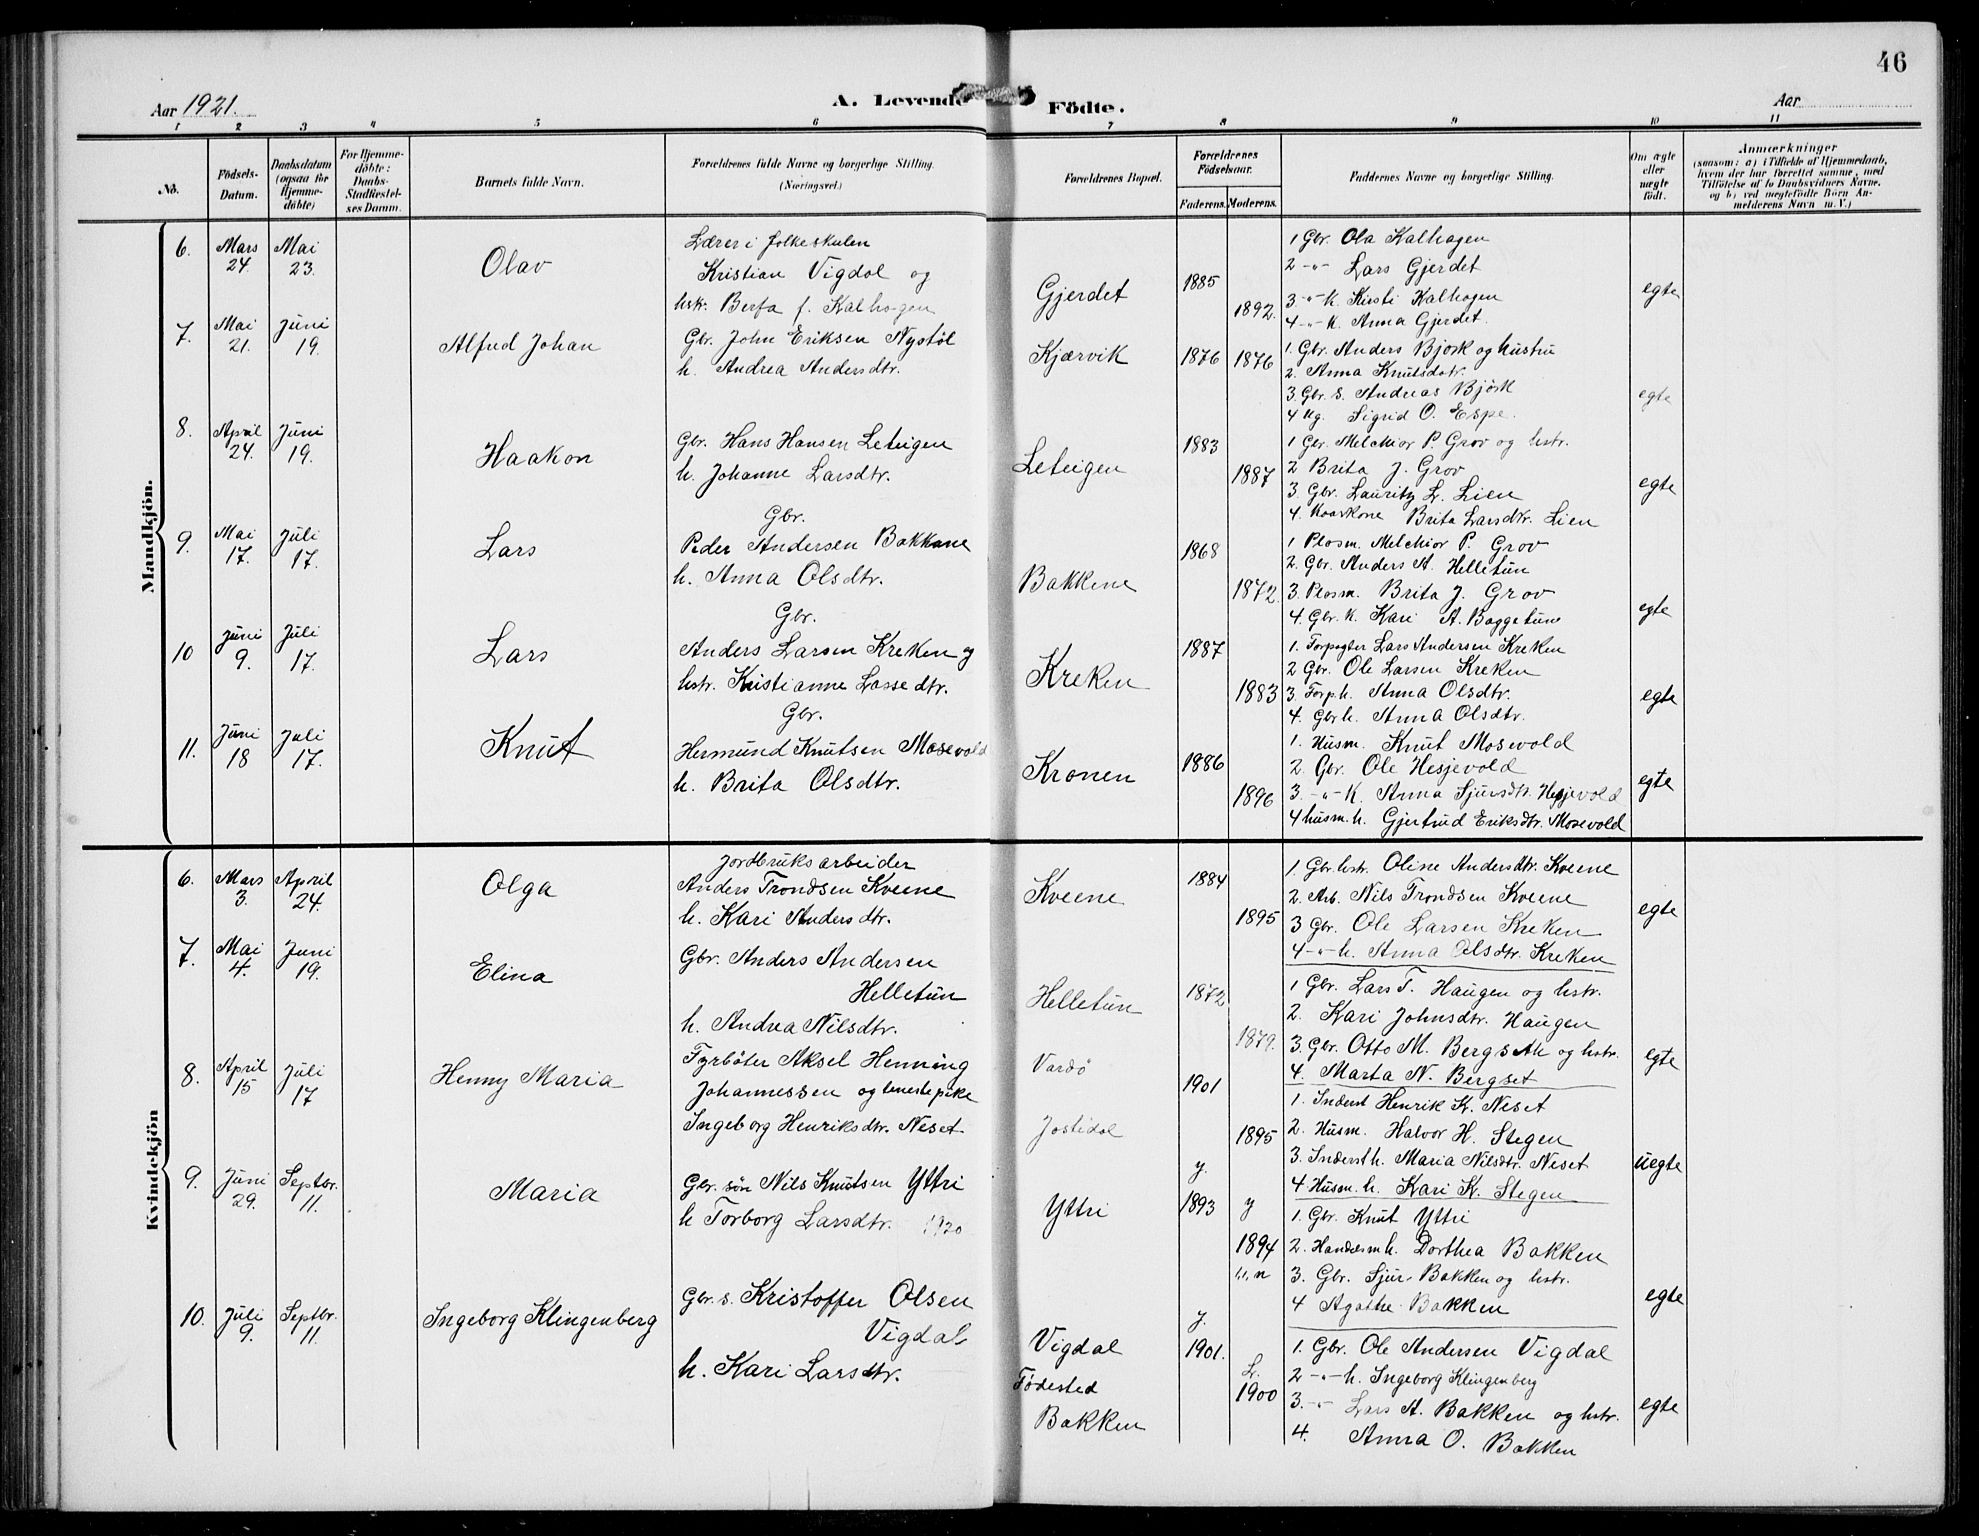 46
Aar 1921.
A. Levende Födte.
Aar
1 2 3 4 5 6 7 8 9 10 11
No.
Födsels-Datum.
Daabsdatum (ogsaa för Hjemme-döbte)
For Hjemme-döbte: Daabs-Stadfæstel-ses Datum.
Barnets fulde Navn.
Forældrenes fulde Navne og borgerlige Stilling. (Næringsvei.)
Forældrenes Bopæl.
Forældrenes Födselsaar.
Faderens. Moderens.
Faddernes Navne og borgerlige Stilling.
Om ægte eller uægte födt.
Anmærkninger
(saasom: a) i Tilfælde af Hjemmedaab, hvem der har forrettet samme, med Tilföielse af to Daabsvidners Navne, og b) ved uægtefödte Börn Anmelderens Navn m. V.)
Mandkjön.
6. Mars 24. Mai 23. Olav
Lærer i folkeskulen
Kristian Vigdal og
hsk. Berta f. Kalhagen
Gjerdet 1885 1892.
1 Gbr. Ola Kalhagen
2 -"- Lars Gjerdet
3 -"- k. Kirsti Kalhagen
4 -"- k. Anna Gjerdet.
egte
7. Mai 21. Juni 19. Alfred Johan
Gbr. John Eriksen Nystöl
h. Andrea Andersdtr.
Kjærvik 1876 1876
1. Gbr. Anders Bjørk og hustru
2. Anna Knutsdotr.
3. Gbr. s. Andreas Bjørk
4 Ug. Sigrid O. Espe.
egte
8. April 24. Juni 19. Haakon
Gbr. Hans Hansen Leteigen
h. Johanne Larsdtr.
Leteigen 1883 1887
1 Gbr. Melchior P. Grov og hstr.
2 Brita J. Grov
3. Gbr. Lauritz L. Lien
4. Kaarkone Brita Larsdtr. Lien
egte
9. Mai 17. Juli 17. Lars
Gbr.
Peder Andersen Bakkene
h. Anna Olsdtr.
Bakkene 1868 1872.
1 Plasm. Melchior P. Grov
2. Gbr. Anders A. Helletun
3. Plasm. Brita J. Grov
4. Gbr. k. Kari A. Baggetun
egte
10 Juni 9. Juli 17. Lars
Gbr.
Anders Larsen Kreken og
hstr. Kristianne Lassedtr.
Kreken 1887 1883
1. Forpagter Lars Andersen Kreken
2 Gbr. Ole Larsen Kreken
3. Forp. h. Anna Olsdtr.
4. Gbr h. Anna Olsdtr.
egte
11. Juni 18 Juli 17. Knut
Gbr.
Hermund Knutsen Mosevold
h. Brita Olsdtr.
Kronen 1886 1896
1. Husm. Knut Mosevold
2. Gbr. Ole Hesjevold
3. -"- K. Anna Sjursdtr. Hesjevold
4 husm. h. Gjertrud Eriksdtr. Mosevold
egte
Kvindekjön
6. Mars 3. April 24. Olga
Jordbruksarbeider
Anders Trondsen Kveene
h. Kari Andersdtr.
Kveene 1884 1895
1. Gbr. hstr. Oline Andersdtr. Kveene
2. Arb. Nils Trondsen Kveene
3 Gbr. Ole Larsen Kreken
4 -"- h. Anna Olsdtr. Kreken
egte
7. Mai 4. Juni 19. Elina
Gbr. Anders Andersen
Helletun
h. Andrea Nilsdtr.
Helletun 1872 1879.
1 Gbr. Lars T. Haugen og hstr.
2. Kari Johnsdtr. Haugen
3. Gbr. Otto M. Bergseth og hstr.
4. Marta N. Bergset
egte
8. April 15 Juli 17 Henny Maria
Fyrböter Aksel Henning
Johannessen og tenestepike
Ingeborg Henriksdtr. Neset
Vardö
Jostedal
1901 1895
1. Inderst Henrik K. Neset
2. Husm. Halvor H. Stegen
3. Inderst h. Maria Nilsdtr. Neset
4. Husm. h. Kari K. Stegen
uegte
9. Juni 29. Septbr. 11. Maria
Gbr. søn Nils Knutsen Yttri
h Torborg Larsdtr. 1920
Yttri y. 1893 y 1894
1. Gbr. Knut Yttri
2. Handelsm h. Dorthea Bakken
3. Gbr. Sjur Bakken og hstr.
4 Agathe Bakken
egte
10. Juli 9. Septbr. 11. Ingeborg Klingenberg
Gbr. s. Kristoffer Olsen
Vigdal
h. Kari Larsdtr.
Vigdal
Födested
Bakken
y. 1901. L. 1900
1. Gbr. Ole Andersen Vigdal
2 -"- h. Ingeborg Klingenberg
3. -"- Lars A. Bakken og hstr.
4. Anna O. Bakken
egte